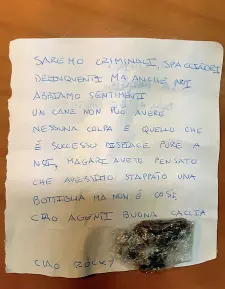 SAREMO CRIMINALI, SPACCIATORI
DELINQUENTI MA ANCHE NOI
ABBIAMO SENTIMENTI
UN CANE NON PUÒ AVERE
NESSUNA COLPA E QUELLO CHE
È SUCCESSO DISPIACE PURE A
NOI, MAGARI AVETE PENSATO
CHE AVESSIMO STAPPATO UNA
BOTTIGLIA MA NON È COSÌ,
CIAO AGENTI BUONA CACCIA
CIAO ROCKY